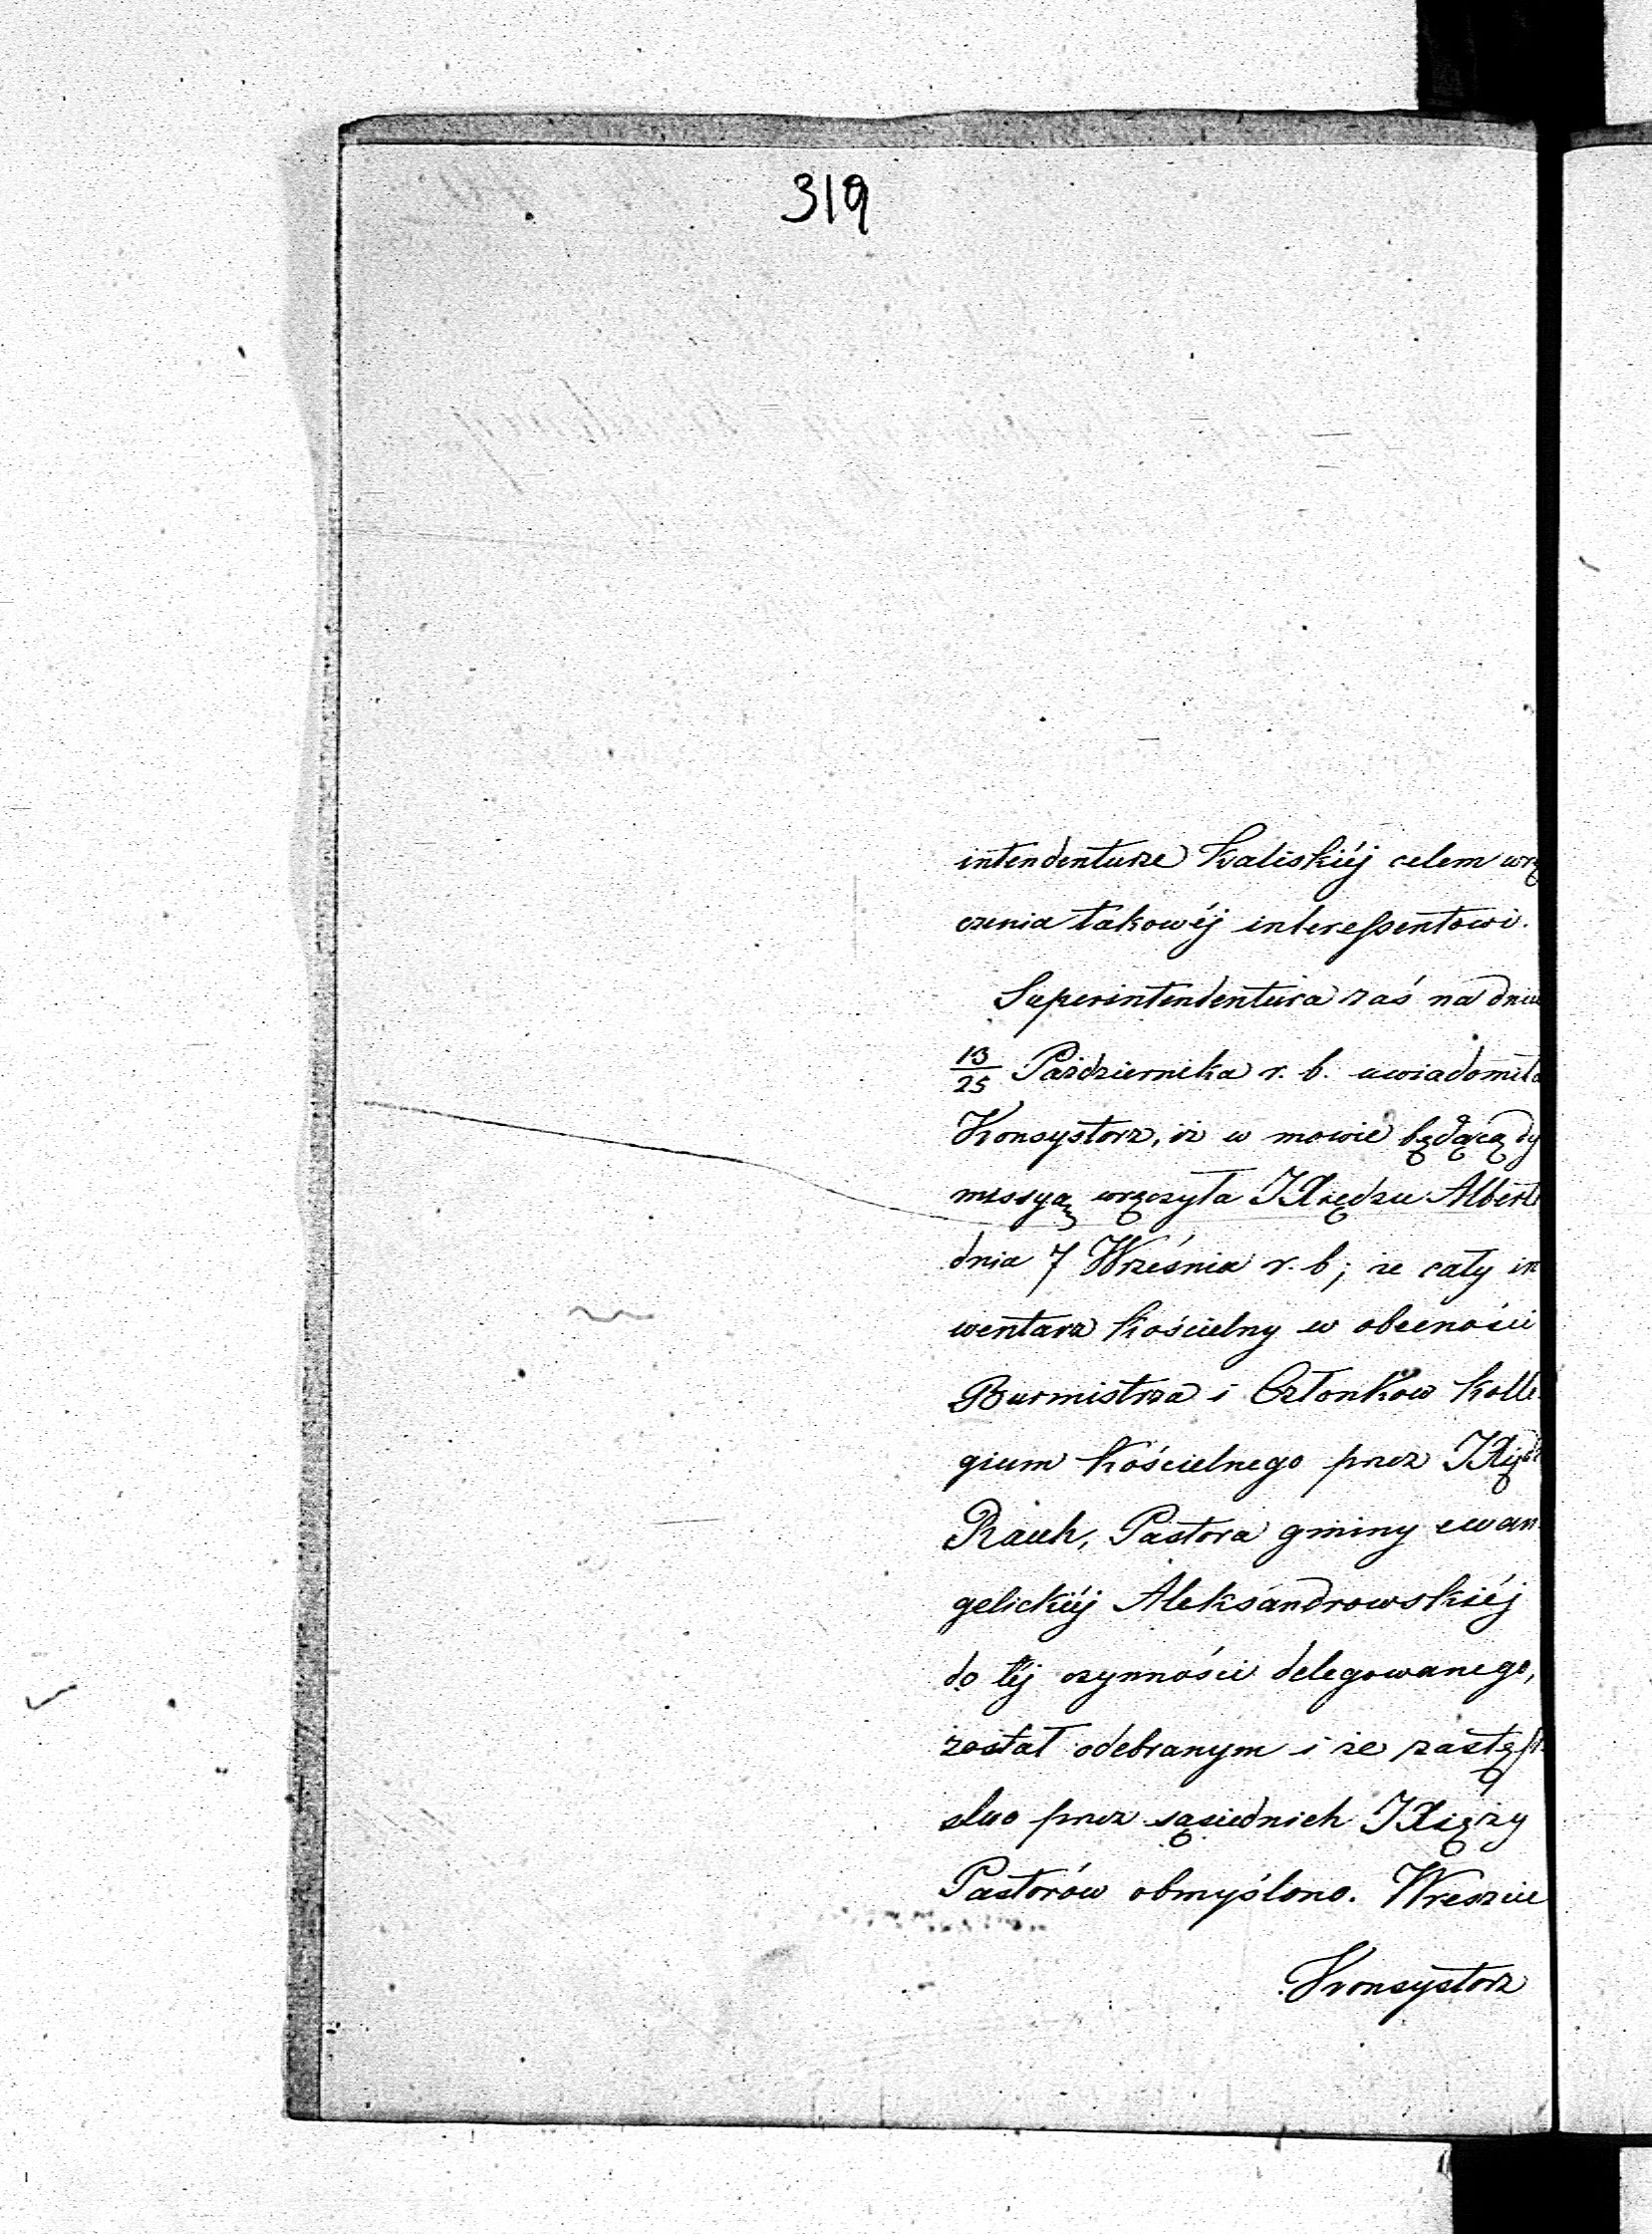 319
intendenturze Kaliskiéj celem wrę
czenia takowéj interessentowi.
Superintendentura zaś na dniu
13/25 Października r. b. uwiadomiła
Konsystorz, iż w mowie będącą dy
missyą wręczyła JXiędzu Albert
dnia 7 Września r. b; że cały in
wentarz Kościelny w obecności
Burmistrza i Członków Kolle
gium Kościelnego przez JXiędz
Rauh, Pastora gminy ewan
gelickiéj Aleksandrowskiéj
do téj czynności delegowanego,
został odebranym i że zastęp
stwo przez sąsiednich JXięży
Pastorów obmyślono. Wreszcie
Konsystorz